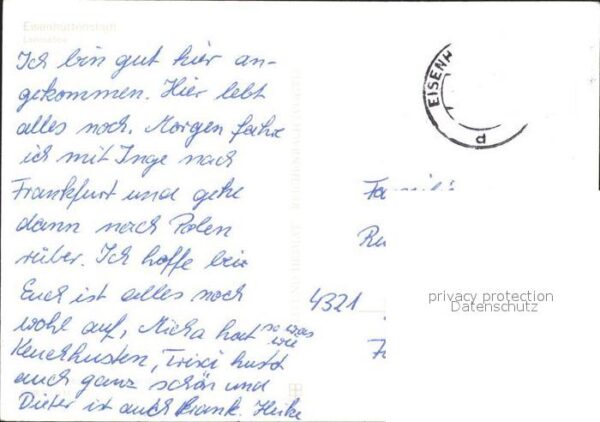 Eisenhüttenstadt
Leninallee
Ich bin gut hier an-
gekommen. Hier lebt
alles noch. Morgen fahre
ich mit Inge nach
Frankfurt und gehe
dann nach Polen
rüber. Ich hoffe bei
Euch ist alles noch
wohl auf, Micha hat so was wie
Keuchhusten, Trixi hustet
auch ganz schön und
Dieter ist auch krank. Heike
EISENH
d
4321
privacy protection
Datenschutz